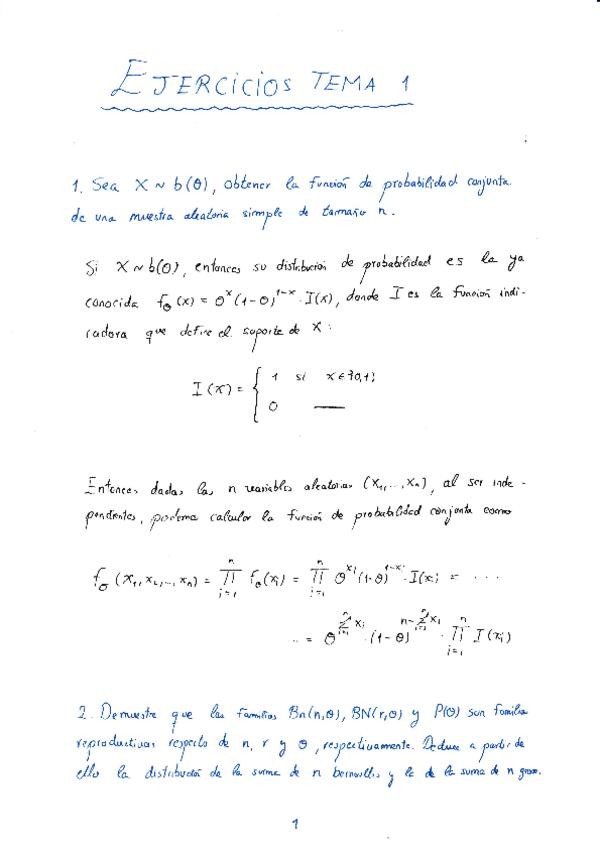 EJERCICIOS TEMA 1
1. Sea X ~ b(θ), obtener la función de probabilidad conjunta
de una muestra aleatoria simple de tamaño n.
Si X ~ b(θ), entonces su distribución de probabilidad es la ya
conocida f_θ(x) = θ^x (1-θ)^{1-x} · I(x), donde I es la función indi-
cadora que define el soporte de X:
I(x) = { 1 si x ∈ {0,1}
0 —
Entonces dadas las n variables aleatorias (X_1, ..., X_n), al ser inde-
pendientes, podemos calcular la función de probabilidad conjunta como
f_θ(x_1, x_2, ..., x_n) = ∏_{i=1}^{n} f_θ(x_i) = ∏_{i=1}^{n} θ^{x_i} (1-θ)^{1-x_i} · I(x_i) = ...
... = θ^{∑_{i=1}^{n} x_i} · (1-θ)^{n-∑_{i=1}^{n} x_i} · ∏_{i=1}^{n} I(x_i)
2. Demuestre que las familias Bn(n,θ), BN(r,θ) y P(θ) son familias
reproductivas respecto de n, r y θ, respectivamente. Deduce a partir de
ello la distribución de la suma de n bernoullis y la de la suma de n geom.
1